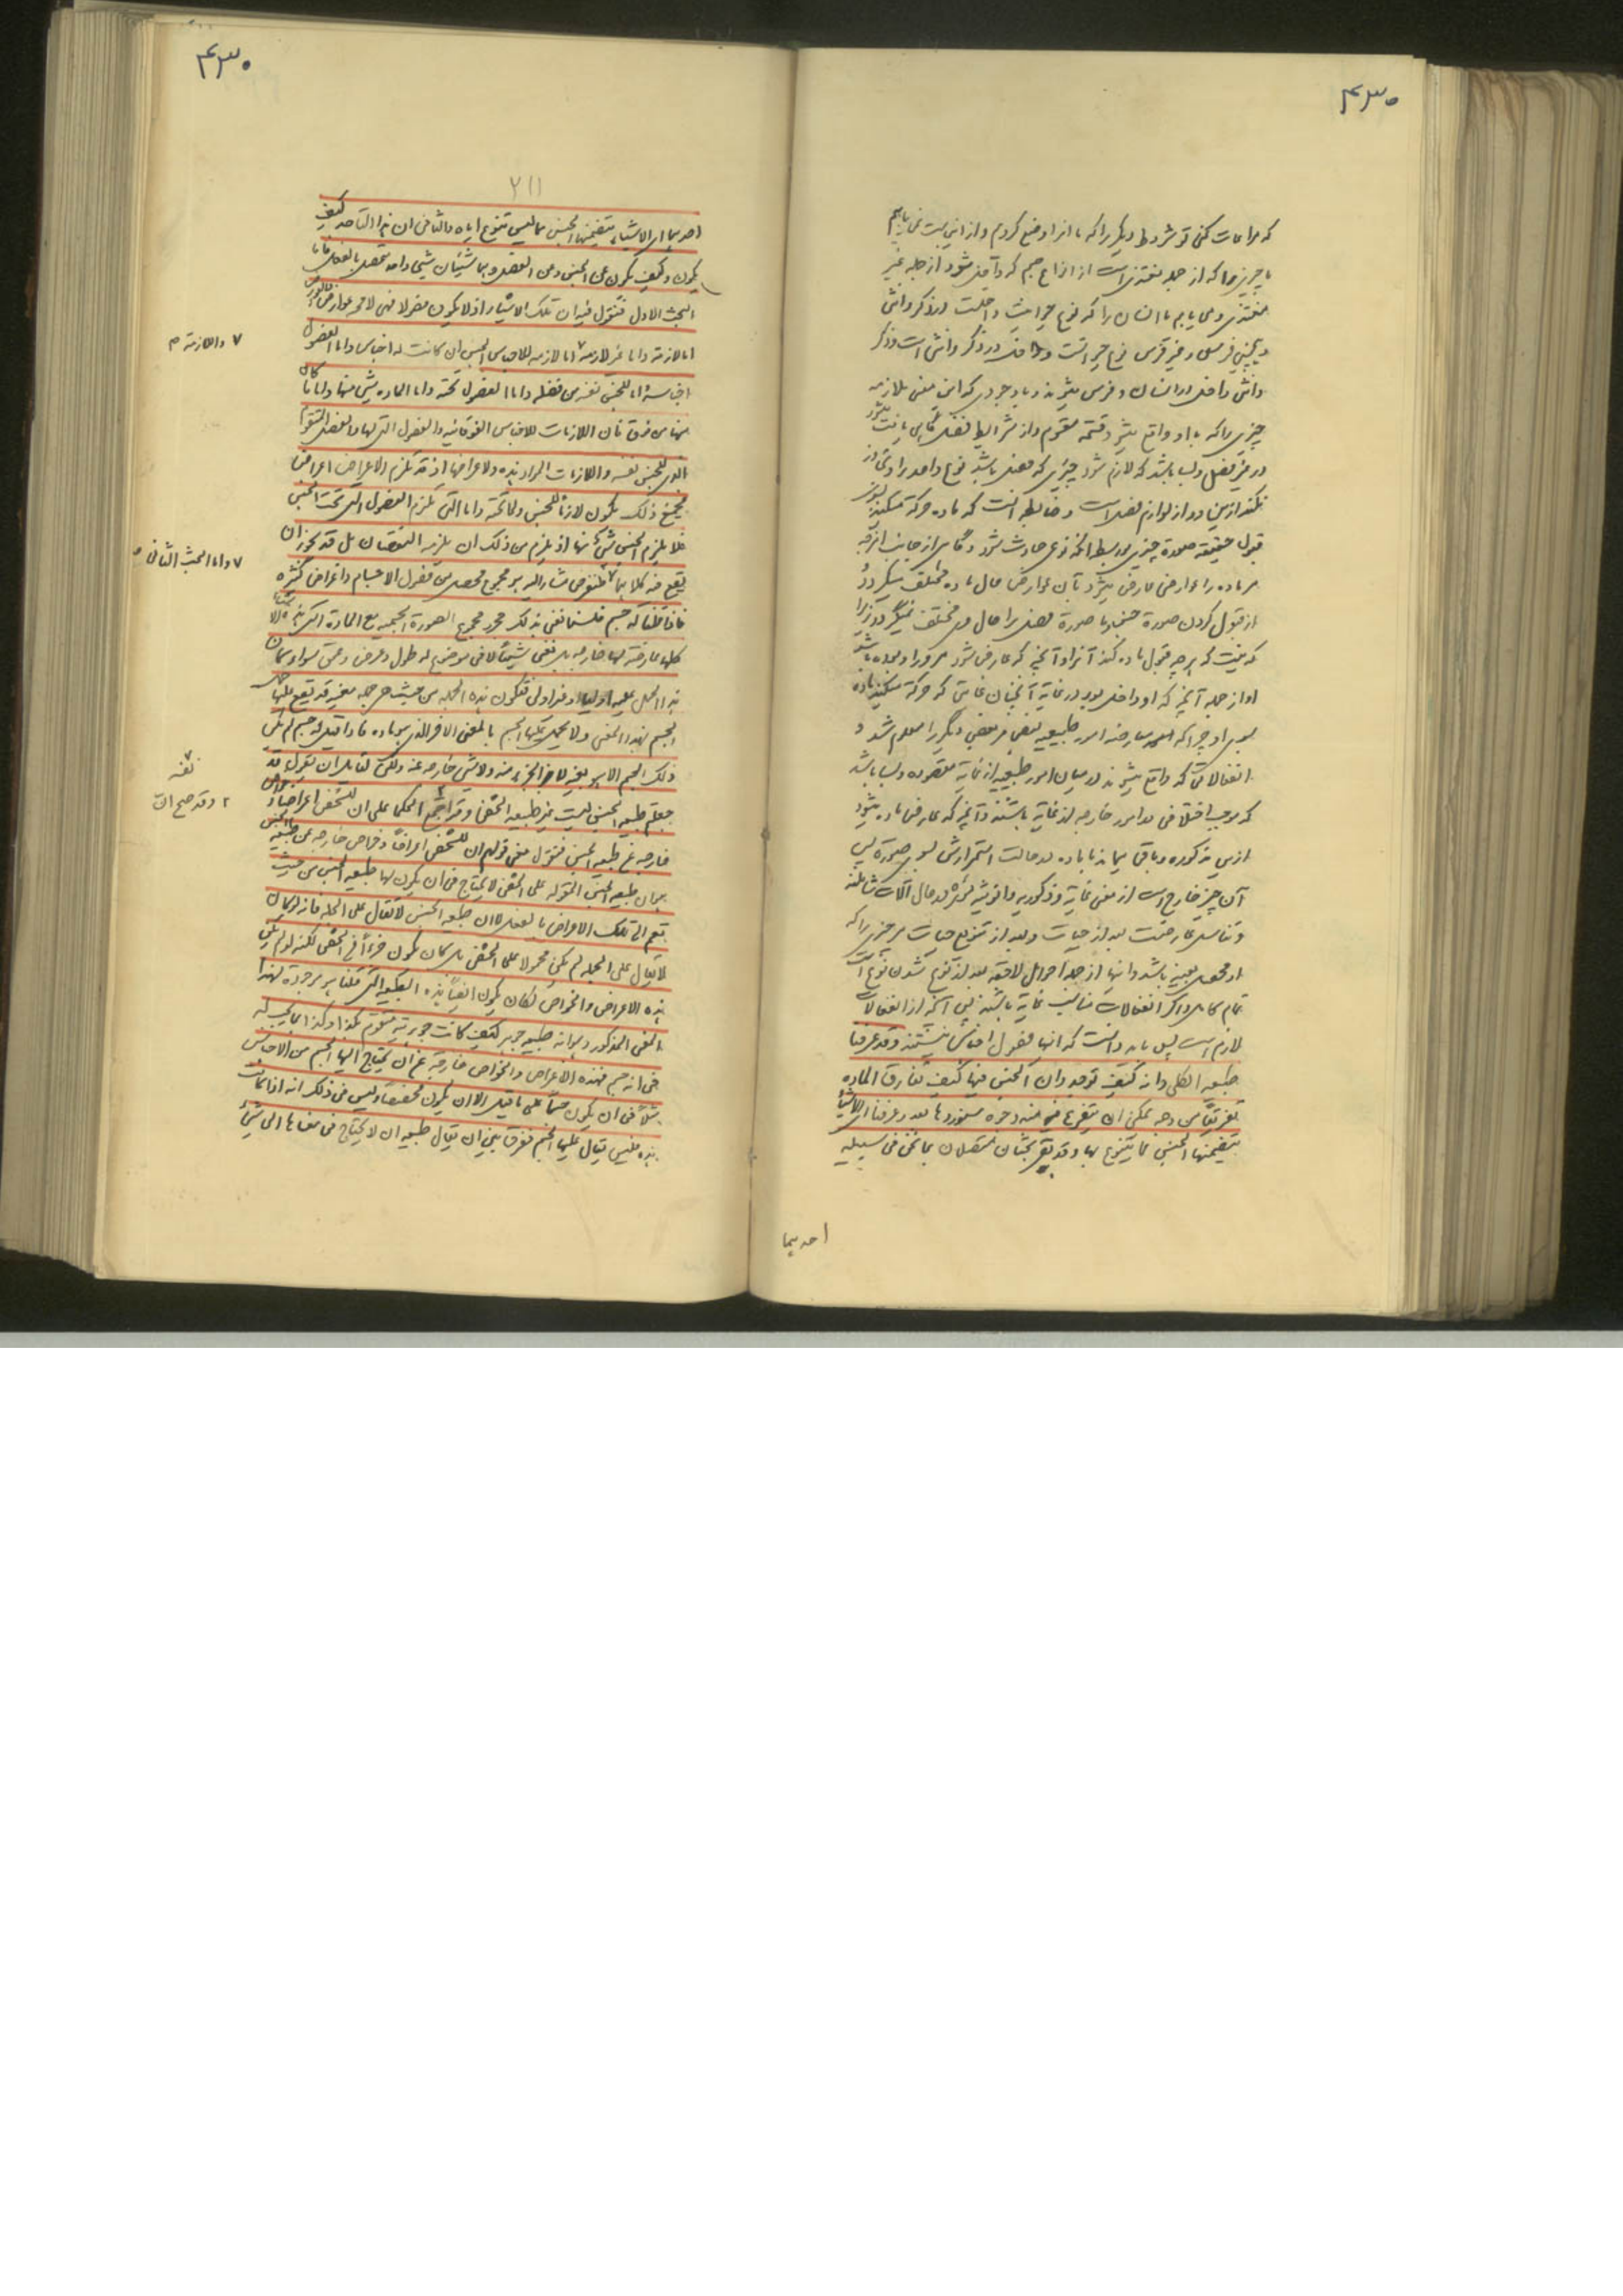 ۴۳۰
که مراعات کنی تو شروط دیگر را که ما انرا وضع کردیم و از این جهت می یابیم
ما چیزی را که از جمله مغتذی است از انواع جسم که داخل میشود از جمله غیر
مغتذی و می یابیم ما انسان را که نوع حیوانیت داخلست در ذکر وانثی
و همچنین فرس و غیر فرس نوع حیوانست و داخل در ذکر وانثی است و ذکر
وانثی داخل در انسان و فرس میشوند و با وجودی که این معنی ملازمه
چیزی را که با او واقع میشود قسمة مقوم و از شرایط فصل گاهی یافت میشود
در غیر فصل و بسا باشد که لازم شود چیزی که فصل باشد نوع واحد را و تجاوز
نکند ازین دو از لوازم فصل است و ضابطه آنست که ماده حرکة میکند بسوی
قبول حقیقة صورة چیزی بواسطه آنکه نوعی حادث شود و گاهی از جانب انرجه
مر ماده را عوارضی عارض میشود بآن عوارض حال ماده مختلف میگردد
از قبول کردن صورة جنس یا صورة فصل برا حال مختلف نمیگردد زیرا
که نیست که هر چه قبول ماده کند آنرا و آنچه که عارض شود مر او را و بوده باشد
او از جمله آنچه که او داخل بود در غایة آنچنان غایتی که حرکة میکند ماده
بسوی او چرا که معارضه امور طبیعیه بعضی مر بعضی دیگر را معلوم شد و
انفعالاتی که واقع میشوند در میان امور طبیعیه از غایة مقصوده و بسا باشد
که موجب اختلافی در امور خارجه از غایة باشند و آنچه که عارض ماده بشود
ازین مذکوره و باقی بماند با ماده در حالت استمرارش بسوی صورة پس
آن چیز خارج است از معنی غایة و ذکوریه وانوثیه مؤثره در حال آلات تناسلند
و تناسل عارضست بعد از حیات و بعد از تنوع حیات مر چیزی را که
او محصل بعینه باشد و اینها از جمله احوال لاحقه بعد از تنوع شدن نوع است
تمام کامل و اگر انفعالات مناسب غایة باشند پس آنچه از انفعالات
لازم است پس باید دانست که اینها فصول اجناس نیستند وقد عرفنا
طبیعة الکلی وانه کیف توجد وان الجنس فیها کیف تفارق الماده
تفریقاً من وجه یمکن ان یتفرع منه وجوه سنوردها بعد وعرفنا ای الاشیاء
یتضمنها الجنس مما یتنوع بها وقد بقی بحثان متصلان بما نحن فی سبیله
احدیهما
۴۳۰
۲۱۱
احدیهما ای الاشیاء یتضمنها الجنس مما لیس تنوع ایاه والثانی ان هذا التاحد کیف
یکون وکیف یکون عن الجنس وعن الفصل وهما شیئان شیئ واحد محصل بالفعل فاما
البحث الاول فنقول فیه ان تلک الاشیاء اذ لا یکون فصولا فهی لا محة عوارض والعوارض
اما لازمة واما غیر لازمة۷ اما لازمه للاجناس الجنس ان کانت له اجناس واما لفصول
اجناسه واما للجنس نفسه من فصله واما لفصول تحته واما لماده شیئ منها واما ما کان
منها من فوق فان اللازمات للاجناس الفوقانیه والفصول التی لها والفصل المقوم
الذی للجنس نفسه واللازمات المواد هذه ولاعراضها اذ قد تلزم الاعراض اعراض
فجمیع ذلک یکون لازماً للجنس ولما تحته واما التی تلزم الفصول التی تحت الجنس
فلا یلزم الجنس شیئ منها اذ یلزم من ذلک ان یلزمه النقیضان بل قد یجوز ان
یقع فیه کلاهما۷ فلنفرض مشارا الیه هو مجموع محصل من فصول الاجسام واعراض کثیره
فاذا قلنا له جسم فلسنا نعنی بذلک مجرد مجموع الصورة الجسمیه مع المادة التی هذه الاشیاء
کلها عارضة لها خارجه بل نعنی شیئاً لا فی موضوع له طول وعرض وعمق سواء کان
هذا الحمل علیه اولیا او غیر اولی فتکون هذه الجمله من حیث هی جمله معینه قد یقع علیها حمل
الجسم بهذا المعنی ولا یحمل علیها الجسم بالمعنی الاخر الذی هو ماده فاذا قیل له جسم لم یکن
ذلک الجسم الا هو بعینه لا جزء منه ولا شیئ خارجه عنه ولکن لقائل ان یقول قد
جعلتم طبیعة الجنس لیست غیر طبیعة الشخص وقد اجمع الحکما علی ان للشخص اعراضا و خواص
خارجه عن طبیعة الجنس فنقول معنی قولهم ان للشخص اعراضاً وخواص خارجه عن طبیعة الجنس
هو ان طبیعة الجنس المقوله علی الشخص لا یحتاج فی ان یکون لها طبیعة الجنس من حیث
تعم الی تلک الاعراض بالفعل لا ان طبیعة الجنس لا تقال علی الجمله فانه لو کان
لا یقال علی الجمله لم یکن محمولا علی الشخص بل کان یکون جزءاً فی الشخص لکنه لو لم یکن
هذه الاعراض والخواص لکان یکون ایضاً هذه الطبیعة التی قلنا هو موجودة بهذا
المعنی المذکور وهو انه طبیعة جوهر کیف کانت جوهریته متقوم بکذا وکذا مما یجب له
فی انه جسم فهذه الاعراض والخواص خارجه عن ان یحتاج الیها الجسم من الاجناس
مثلاً فی ان یکون جسماً علی ما قیل الا ان یکون مخصصاً ولیس فی ذلک انه اذا کانت
هذه فلیس یقال علیها الجسم ففرق بین ان یقال طبیعة ان لا یحتاج فی معناها الی شیئ
۷ واللازمة م
۷ واما البحث الثانی ه
۷ نفسه
۲ وقد صح ان